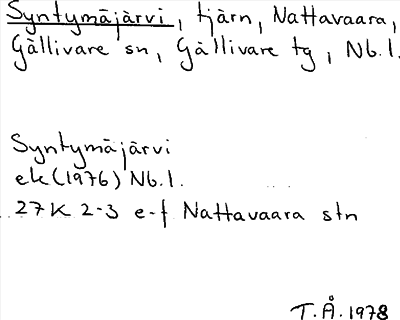 Syntymäjärvi, tjärn, Nattavaara,
Gällivare sn, Gällivare tg, Nb.l.
Syntymäjärvi
ek(1976) Nb.l.
27K 2-3 e-f Nattavaara stn
T.Å.1978